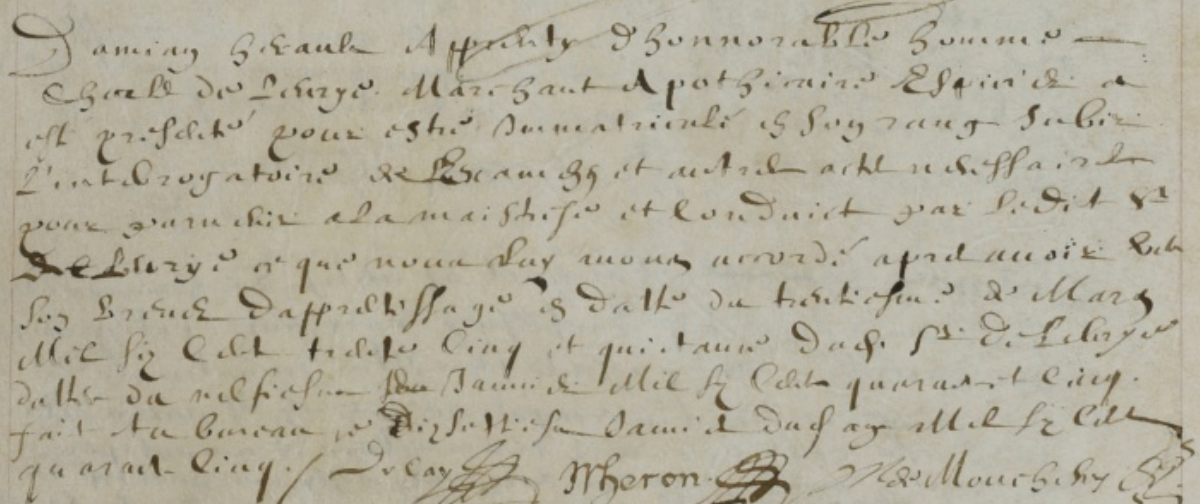 Damian heault Apprenty d'honnorable homme
Charle de Leurye Marchant Apothicaire Espicier a
est presenté pour estre Immatriculé en son rang subir
L'interogatoire de Lexamen et autres actes nessaires
pour parvenir a la maistrise et conduict par ledit Sr
de Leurye ce que nous luy avons accordé apres avoir veu
son brevet dapprentissage en datte du trentiesme de Mars
Mil six cent trente cinq et quictance dud. Sr de Leurye
datte du Janvier Mil six cents quarante cinq.
fait au bureau ce dixseptiesme Janvier dud an Mil six cent
quarante cinq. / Delay Wheron De Mouchhy